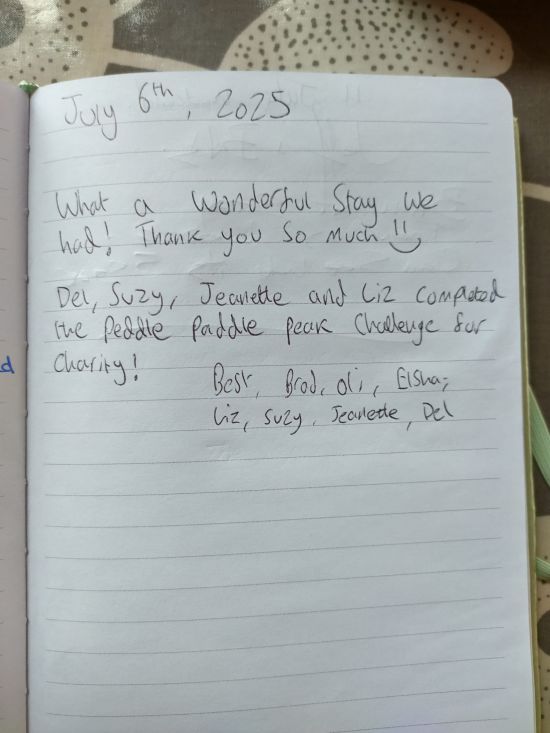 July 6th, 2025
What a Wonderful Stay We
had! Thank you So Much !!
Del, Suzy, Jeanette and Liz Completed
the Peddle Paddle peak Challenge for
Charity!
Best, Brad, Oli, Elsha,
Liz, Suzy, Jeanette, Del
d